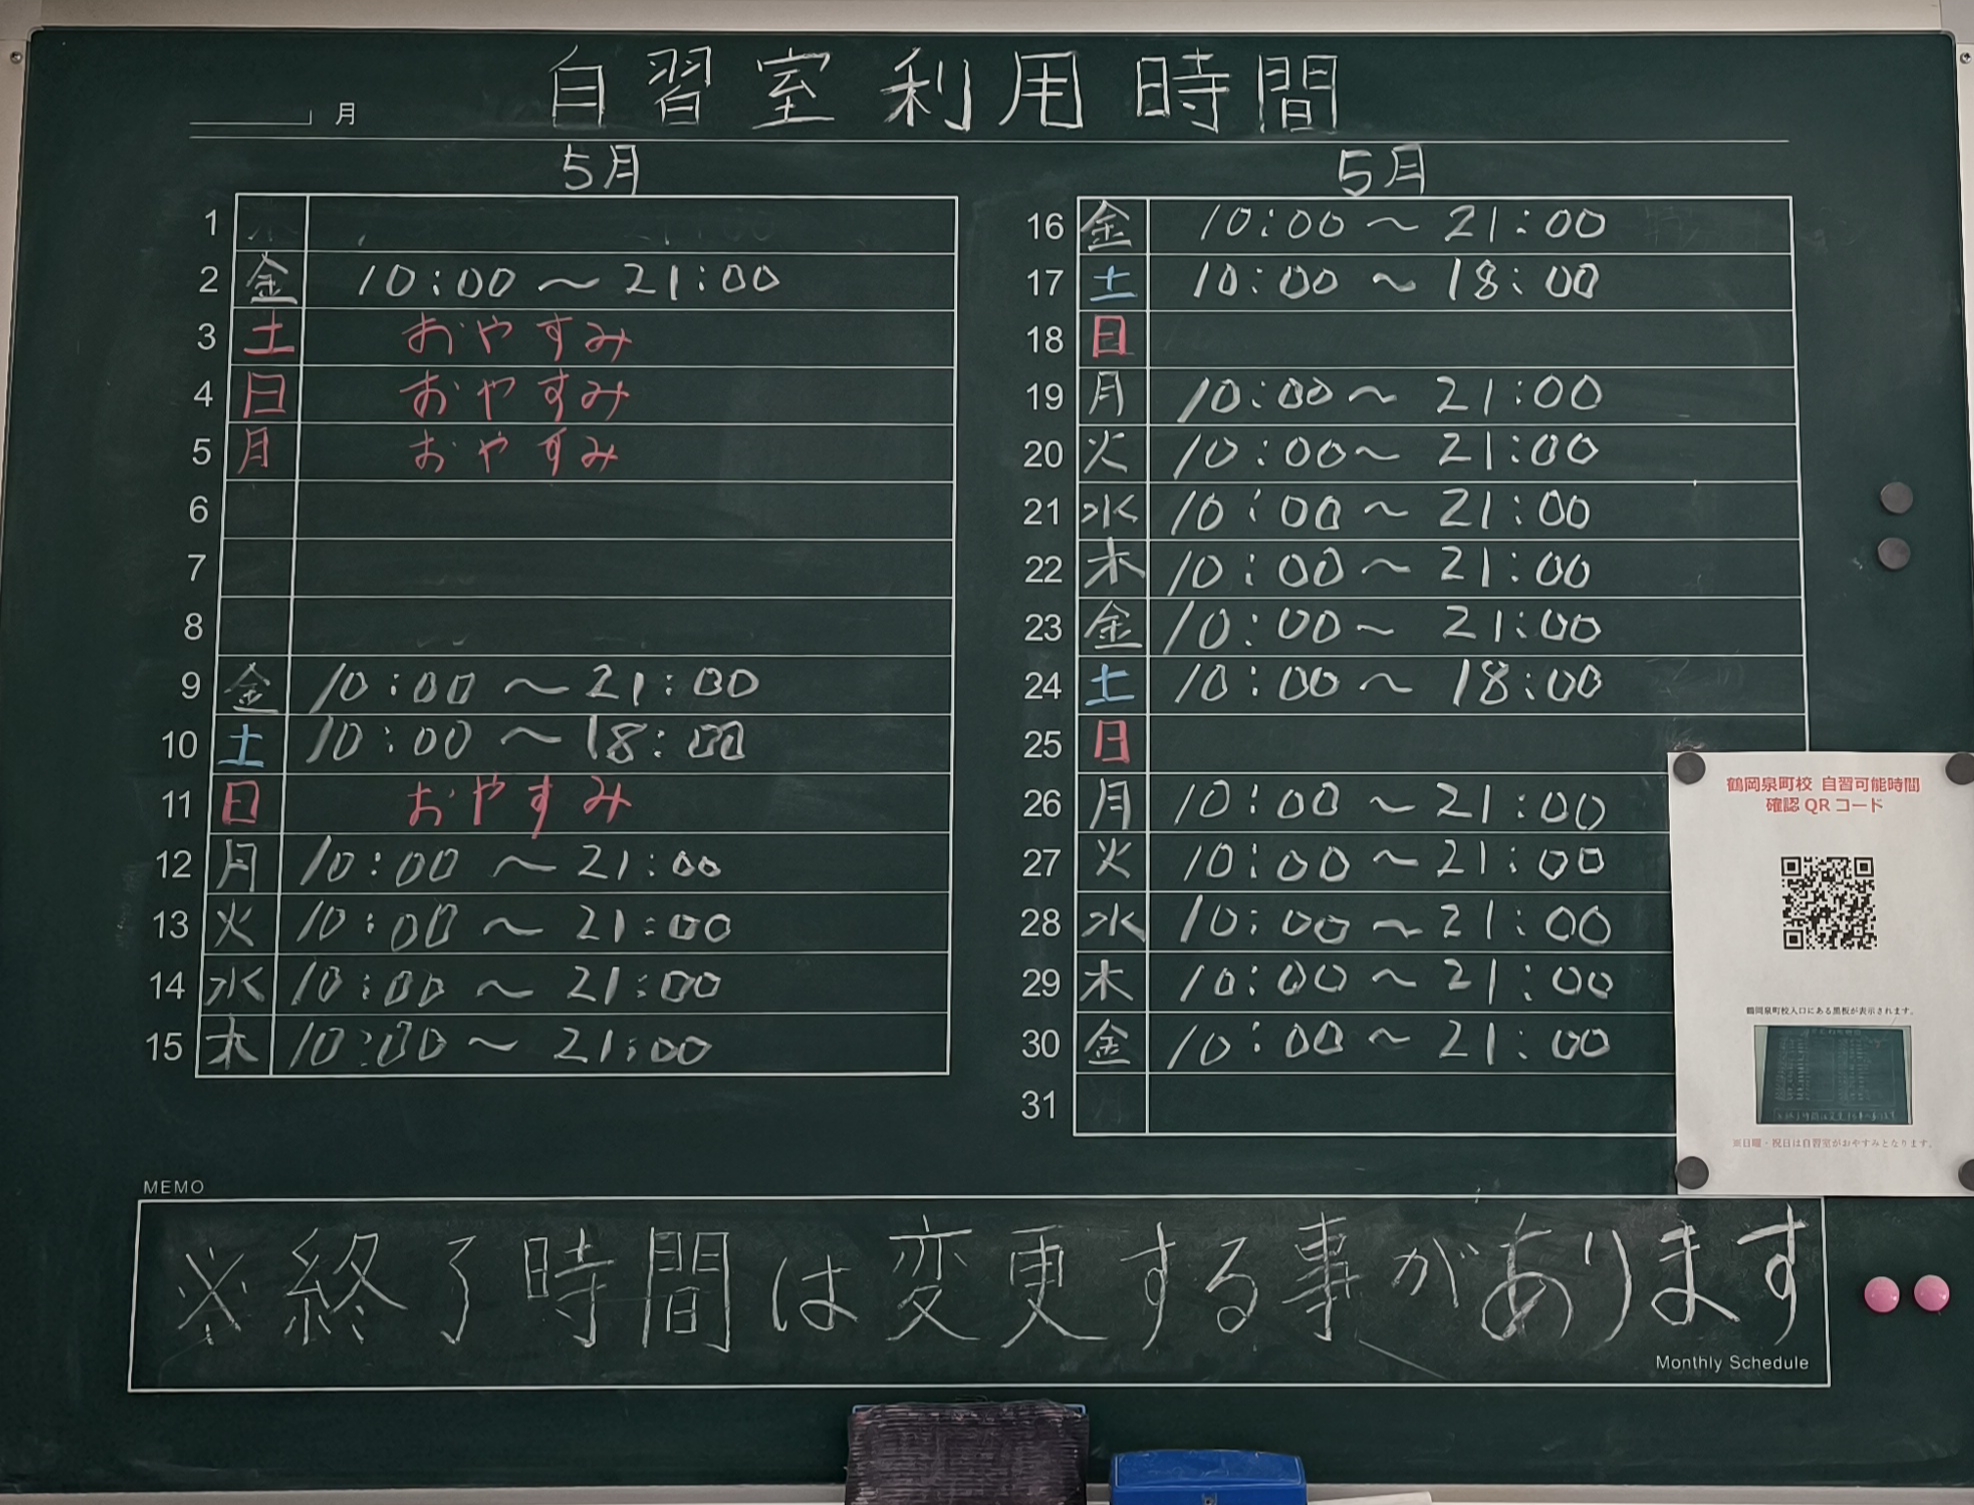 自習室利用時間
月
5月
1
2 金 10:00 ～ 21:00
3 土 おやすみ
4 日 おやすみ
5 月 おやすみ
6
7
8
9 金 10:00 ～ 21:00
10 土 10:00 ～ 18:00
11 日 おやすみ
12 月 10:00 ～ 21:00
13 火 10:00 ～ 21:00
14 水 10:00 ～ 21:00
15 木 10:00 ～ 21:00
5月
16 金 10:00 ～ 21:00
17 土 10:00 ～ 18:00
18 日
19 月 10:00 ～ 21:00
20 火 10:00 ～ 21:00
21 水 10:00 ～ 21:00
22 木 10:00 ～ 21:00
23 金 10:00 ～ 21:00
24 土 10:00 ～ 18:00
25 日
26 月 10:00 ～ 21:00
27 火 10:00 ～ 21:00
28 水 10:00 ～ 21:00
29 木 10:00 ～ 21:00
30 金 10:00 ～ 21:00
31
鶴岡泉町校 自習可能時間
確認 QR コード
鶴岡泉町校入口にある黒板が表示されます。
※日曜・祝日は自習室がおやすみとなります。
MEMO
※終了時間は変更する事があります
Monthly Schedule